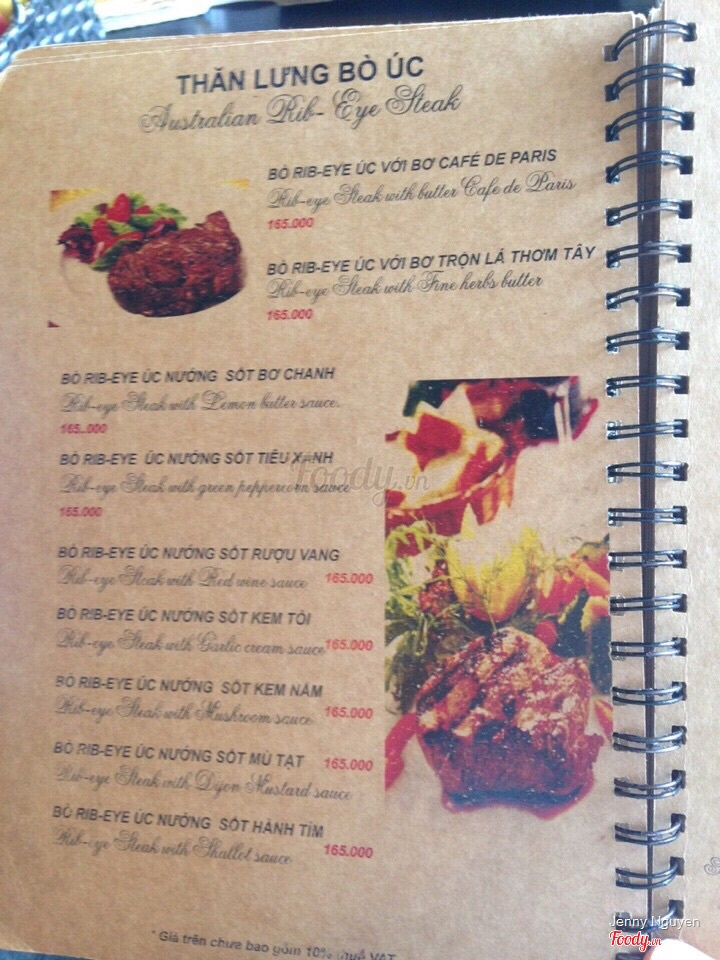 THĂN LƯNG BÒ ÚC
Australian Rib-Eye Steak
BÒ RIB-EYE ÚC VỚI BƠ CAFÉ DE PARIS
Rib-eye Steak with butter Cafe de Paris
165.000
BÒ RIB-EYE ÚC VỚI BƠ TRỘN LÁ THƠM TÂY
Rib-eye Steak with Fine herbs butter
165.000
BÒ RIB-EYE ÚC NƯỚNG SỐT BƠ CHANH
Rib-eye Steak with Lemon butter sauce.
165..000
BÒ RIB-EYE ÚC NƯỚNG SỐT TIÊU XANH
Rib-eye Steak with green peppercorn sauce
165.000
BÒ RIB-EYE ÚC NƯỚNG SỐT RƯỢU VANG
Rib-eye Steak with Red wine sauce 165.000
BÒ RIB-EYE ÚC NƯỚNG SỐT KEM TỎI
Rib-eye Steak with Garlic cream sauce 165.000
BÒ RIB-EYE ÚC NƯỚNG SỐT KEM NẤM
Rib-eye Steak with Mushroom sauce 165.000
BÒ RIB-EYE ÚC NƯỚNG SỐT MÙ TẠT 165.000
Rib-eye Steak with Dijon Mustard sauce
BÒ RIB-EYE ÚC NƯỚNG SỐT HÀNH TÍM
Rib-eye Steak with Shallot sauce 165.000
* Giá trên chưa bao gồm 10% thuế VAT
Foody.vn
Jenny Nguyen
Foody.vn